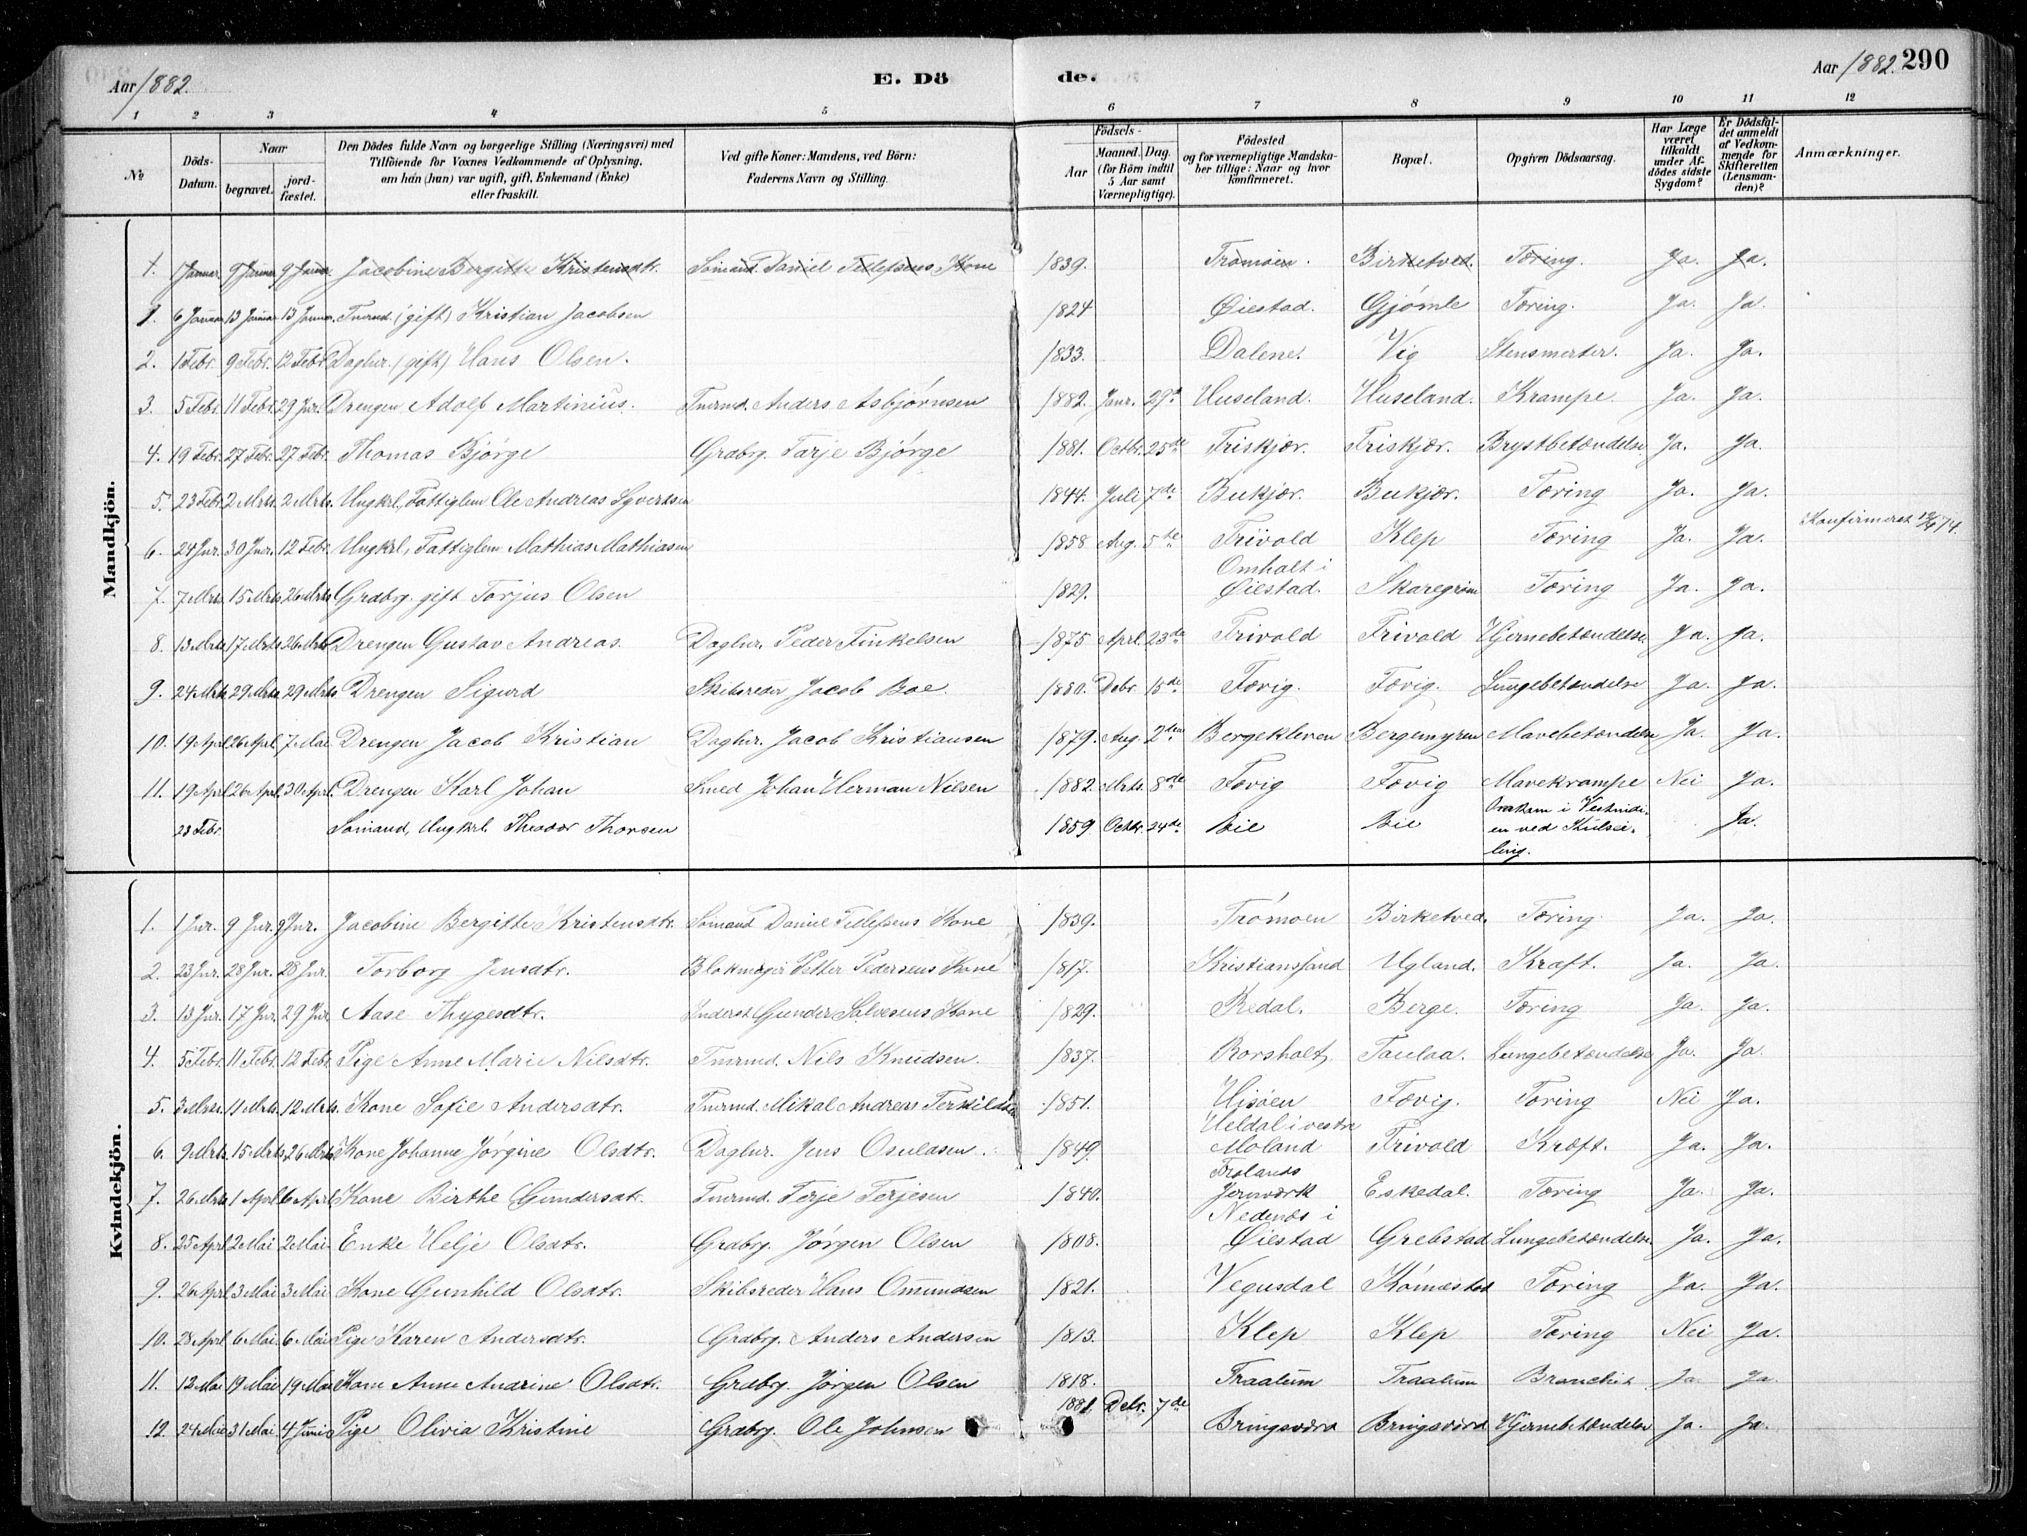 Aar 1882. E. Dö de. Aar 1882. 290
1 2 3 4 5 6 7 8 9 10 11 12
№ Döds-Datum. Naar begravet. jord-fæstet. Den Dödes fulde Navn og borgerlige Stilling (Næringsvei) med Tilföiende for Voxnes Vedkommende af Oplysning, om han (hun) var ugift, gift, Enkemand (Enke) eller fraskilt. Ved gifte Koner: Mandens, ved Börn: Faderens Navn og Stilling. Födsels- Aar Maaned. Dag. (for Börn indtil 5 Aar samt Værnepligtige). Födested og for værnepligtige Mandskaber tillige: Naar og hvor konfirmeret. Bopæl. Opgiven Dödsaarsag. Har Læge været tilkaldt under Afdödes sidste Sygdom? Er Dödsfaldet anmeldt af Vedkommende for Skifteretten (Lensmanden)? Anmærkninger.
Mandkjön.
1. 1 Januar 9 Januar 9 Januar Jacobine Bergitte Kristensdtr. Sömand Daniel Tellefsens Kone 1839. Tromøen. Birketved. Tæring. Ja. Ja.
1. 6 Januar 13 Januar 13 Januar Tmrmd. (gift) Kristian Jacobsen 1824 Øiestad. Gjømle Tæring. Ja. Ja.
2. 1 Febr. 9 Febr. 12 Febr. Daglnr. (gift) Hans Olsen. 1833. Dalene. Vig Stensmerter. Ja. Ja.
3. 5 Febr. 11 Febr. 29 Jur. Drengen Adolf Martinius. Tmrmd. Anders Asbjørnsen 1882. Janr. 29de Huseland. Huseland. Krampe. Ja. Ja.
4. 19 Febr. 27 Febr. 27 Febr. Thomas Bjørge Grdbrg. Tarje Bjørge 1881. Octbr. 25de Friskjær. Friskjær. Brystbetændelse Ja. Ja.
5. 23 Febr. 2 Mrts. 2 Mrts. Ungkrl, Fattiglem Ole Andreas Syvertsen 1844. Juli 7de Bukjær. Bukjær. Tæring Ja. Ja.
6. 24 Jnr. 30 Jnr. 12 Febr. Ungkrl, Fattiglem Mathias Mathiasen 1858 Aug. 5te Trivold Klep Tæring Ja. Ja. Konfirmeret 74.
7. 7 Mrts. 15 Mrts 26 Mrts Grdbrg. gift Torjus Olsen 1829. Omholt i Øiestad. Skaregrøm Tæring Ja. Ja.
8. 13 Mrts 17 Mrts 26 Mrts Drengen Gustav Andreas. Daglnr. Peder Finkelsen 1875 Aprl. 23de Trivold Trivold Hjernebetændelse Ja. Ja.
9. 24 Mrts 29 Mrts 29 Mrts Drengen Sigurd Skibsreder Jacob Boe. 1880. Debr. 15de Fævig. Fævig. Lungebetændelse Ja. Ja.
10. 19 Aprl 26 Aprl 7 Mai Drengen Jacob Kristian Daglnr. Jacob Kristiansen 1879. Aug. 2den Bergekleven Bergemyren Mavebetændelse Ja. Ja.
11. 19 Aprl 26 Aprl. 30 Aprl. Drengen Karl Johan Smed Johan Herman Nilsen 1882. Mrts. 8de Fævig Fævig Mavekrampe Nei Ja.
23 Febr. Sømand, Ungkrl. Theodor Thorsen 1859 Octbr. 24de Bie Bie Omkom i Vestindien ved Kulseiling. Ja.
Kvindekjön.
1. 1 Jnr. 9 Jnr. 9 Jnr. Jacobine Bergitte Kristensdtr. Sømand Daniel Tellefsens Kone 1839. Trømøen Birketved. Tæring. Ja. Ja.
2. 23 Jnr. 28 Jnr. 28 Jnr. Torborg Jensdtr. Blokmager Petter Pedersens Kone 1817. Kristianssand Ugland. Kræft. Ja. Ja.
3. 13 Jnr. 17 Jnr. 29 Jnr. Aase Thygesdtr. Inderst Gunder Salvesens Kone 1829. Redal. Berge. Tæring Ja. Ja.
4. 5 Febr. 11 Febr. 12 Febr. Pige Anne Marie Nilsdtr. Tmrmd. Nils Knudsen. 1837. Rorsholt, Taulaa. Lungebetændelse Ja. Ja
5. 3 Mrts. 11 Mrts. 12 Mrts. Kone Sofie Andersdtr. Tmrmd. Mikal Andreas Terkildsen 1851. Hisøen Fævig. Tæring Nei Ja.
6. 9 Mrts. 15 Mrts. 26 Mrts Kone Johanne Jørgine Olsdtr. Daglnr. Jens Osulasen. 1849. Heldal i vestre Moland Trivold Kræft. Ja. Ja.
7. 26 Mrts 1 Aprl 6 Aprl Kone Birthe Gundersdtr. Tmrmd. Terje Terjesen 1840. Frolands Jernværk Eskedal. Tæring Ja. Ja.
8. 25 Aprl 2 Mai 2 Mai Enke Helje Olsdtr. Grdbrg. Jørgen Olsen 1808. Nedenæs i Øiestad Grebstad Lungebetændelse Ja. Ja.
9. 26 Aprl 3 Mai 3 Mai Kone Gunhild Olsdtr. Skibsreder Hans Omundsen 1821. Vegusdal Kømæstad Tæring Ja. Ja.
10. 28 Aprl 6 Mai 6 Mai Pige Karen Andersdtr. Grdbrg. Anders Andersen 1813. Klep Klep Tæring Nei Ja.
11. 12 Mai 19 Mai 19 Mai Kone Anne Andrine Olsdtr. Grdbrg. Jørgen Olsen 1818. Traalum Traalum Bronchit Ja. Ja.
12. 24 Mai 31 Mai 4 Juni Pige Olivia Kristine Grdbrg. Ole Johnsen 1881. Debr. 7de Bringsværd Bringsværd Hjernebetændelse Ja. Ja.